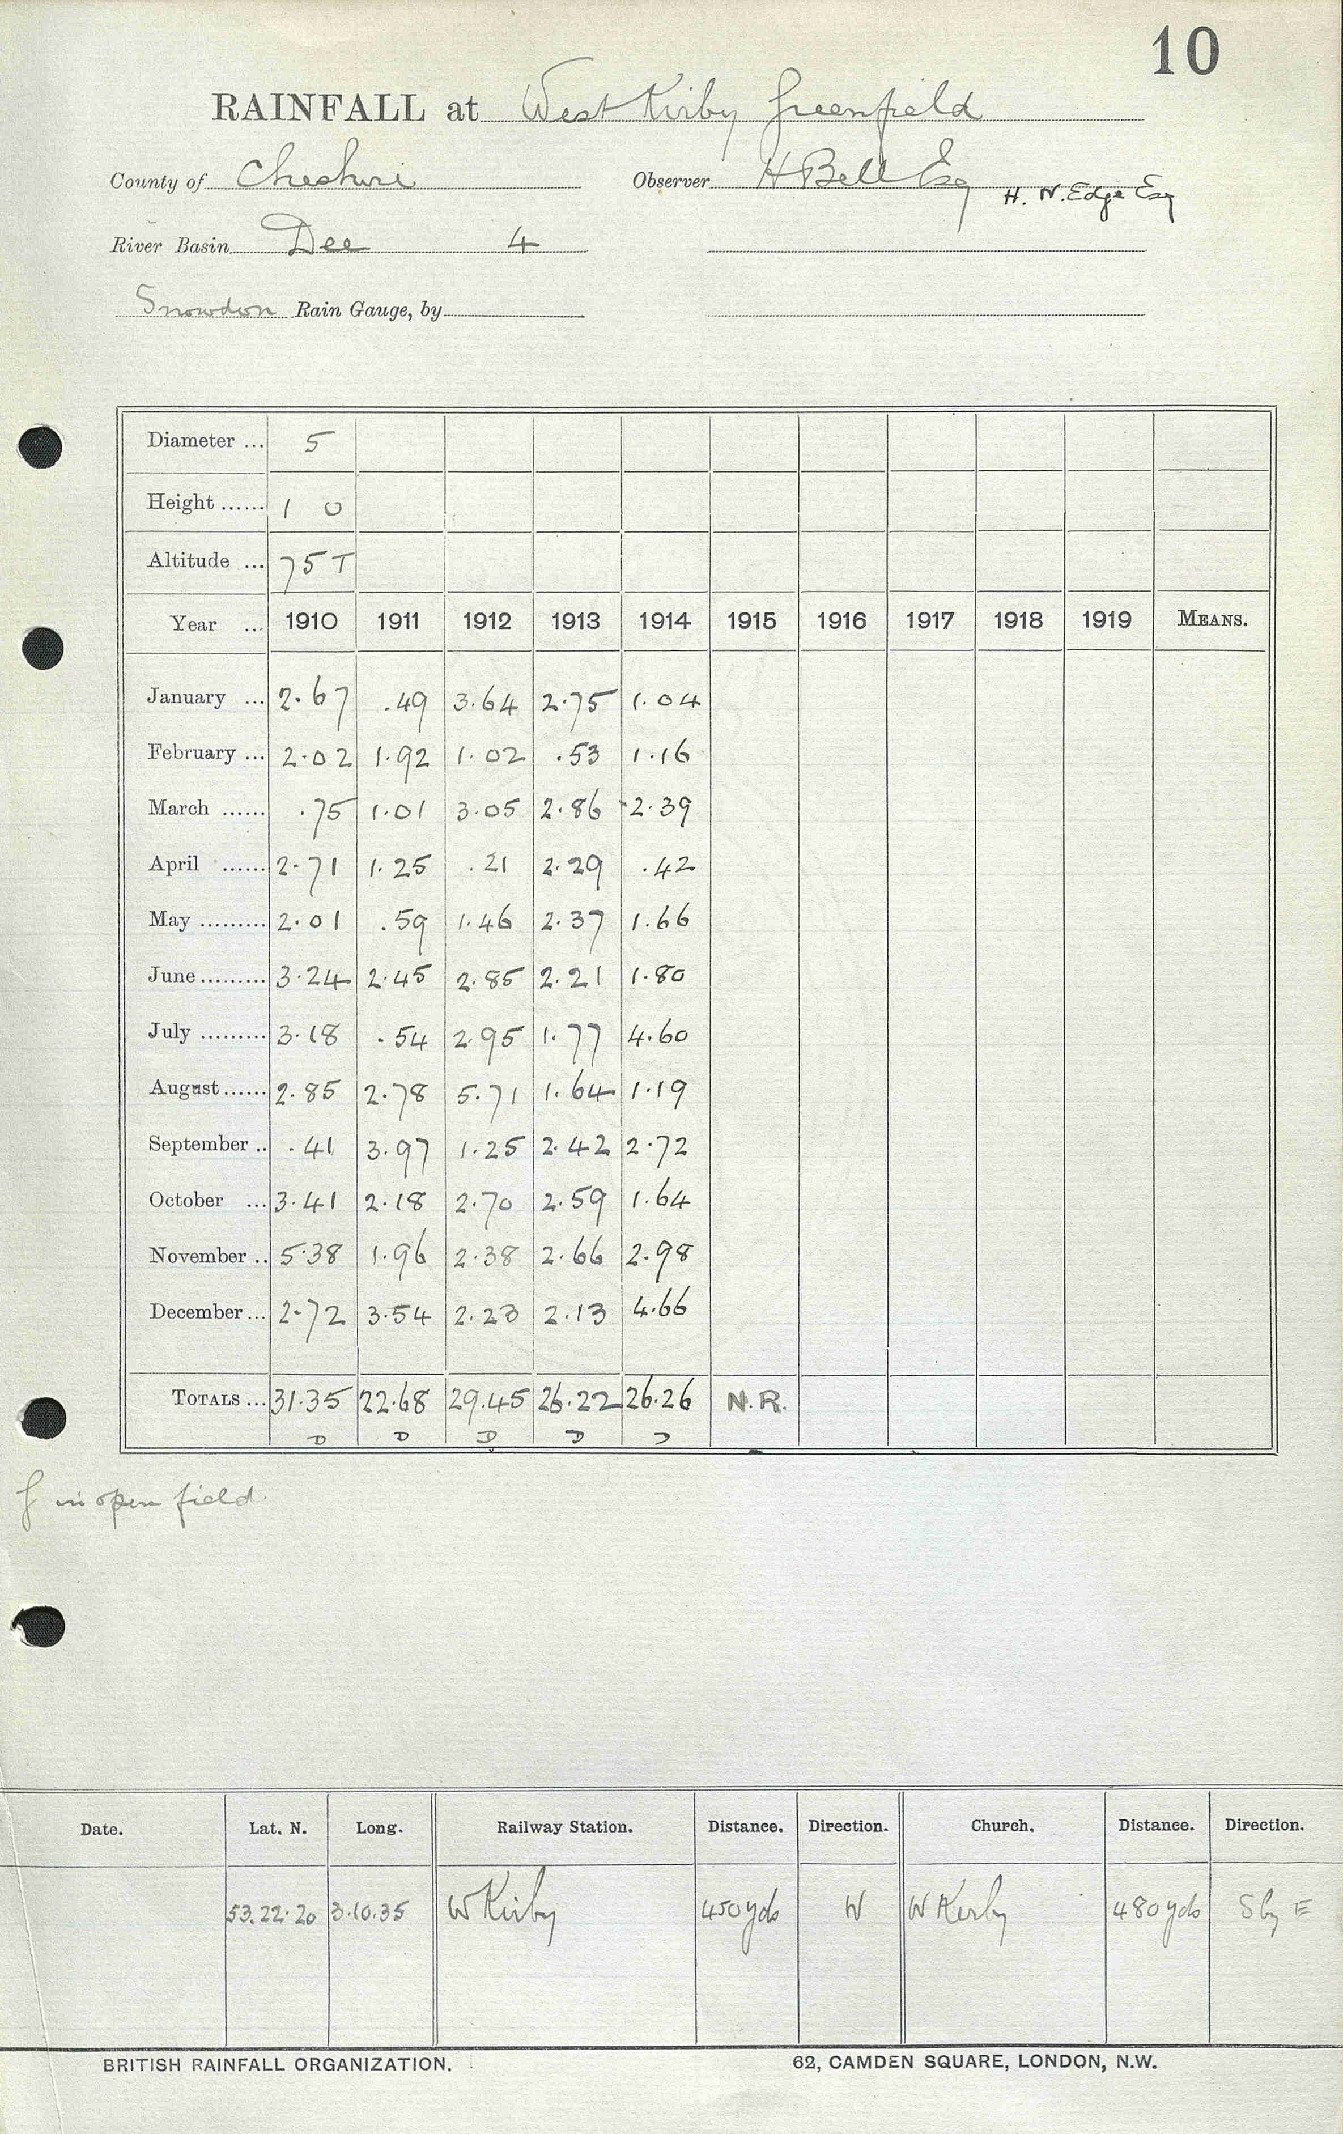 10
RAINFALL at West Kirby Greenfield
County of Cheshire Observer H Bell Esq H. N. Edge Esq
River Basin Dee 4
Snowdon Rain Gauge, by
Diameter ... 5
Height ...... 1 0
Altitude ... 75 T
Year ... 1910 1911 1912 1913 1914 1915 1916 1917 1918 1919 MEANS.
January ... 2.67 .49 3.64 2.75 1.04
February ... 2.02 1.92 1.02 .53 1.16
March ...... .75 1.01 3.05 2.86 2.39
April ...... 2.71 1.25 .21 2.29 .42
May ......... 2.01 .59 1.46 2.37 1.66
June ......... 3.24 2.45 2.85 2.21 1.80
July ......... 3.18 .54 2.95 1.77 4.60
August ...... 2.85 2.78 5.71 1.64 1.19
September .. .41 3.97 1.25 2.42 2.72
October ... 3.41 2.18 2.70 2.59 1.64
November .. 5.38 1.96 2.38 2.66 2.98
December ... 2.72 3.54 2.23 2.13 4.66
TOTALS ... 31.35 22.68 29.45 26.22 26.26 N.R.
D D D D D
in open field.
Date. Lat. N. Long. Railway Station. Distance. Direction. Church. Distance. Direction.
53.22.20 3.10.35 W Kirby 450 yds W W Kirby 480 yds S by E
BRITISH RAINFALL ORGANIZATION. 62, CAMDEN SQUARE, LONDON, N.W.